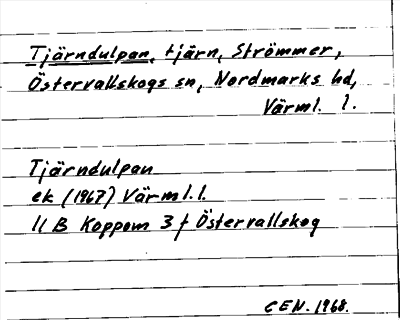 Tjärndulpan, tjärn, Strömmer,
Östervallskogs sn, Nordmarks hd,
Värml. l.
Tjärndulpan
ek (1967) Värml. l.
11 B Koppom 3 f Östervallskog
CEN. 1968.